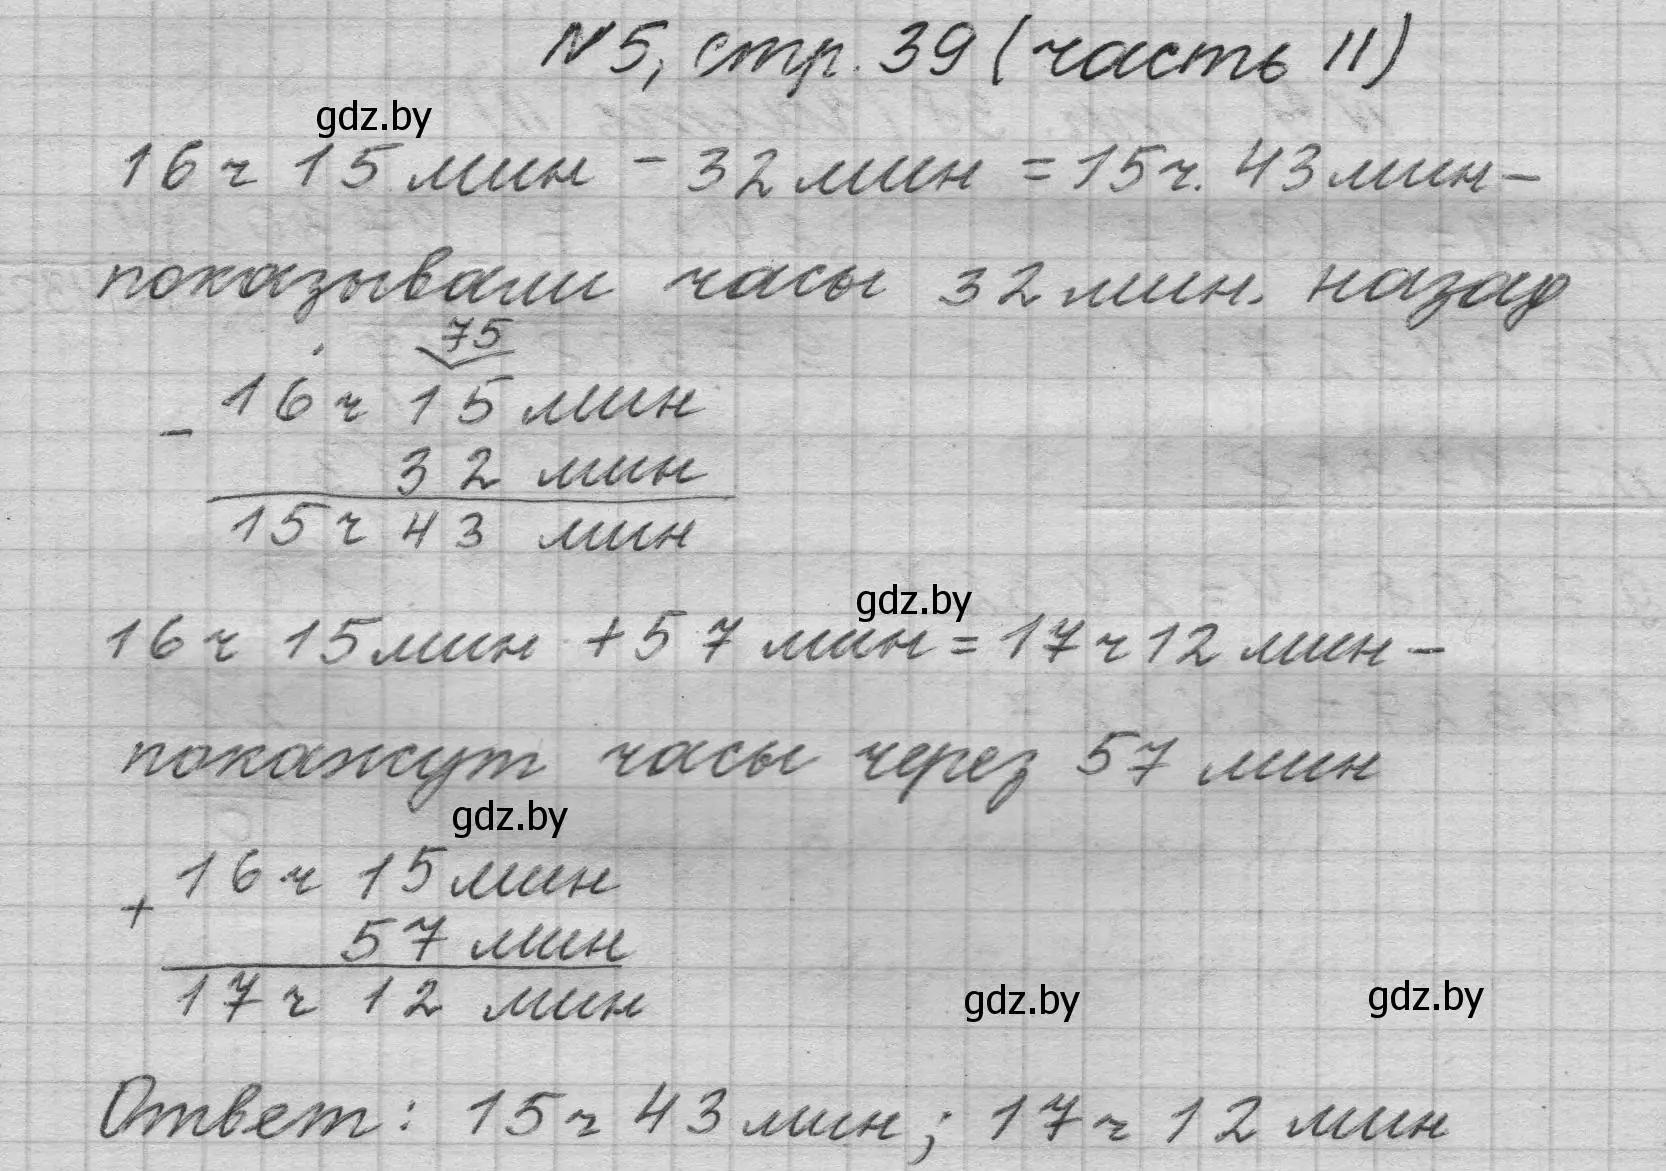 №5, стр. 39 (часть II)
gdz.by
16 ч 15 мин - 32 мин = 15 ч. 43 мин -
показывали часы 32 мин. назад
75
16 ч 15 мин
-
32 мин
15 ч 43 мин
gdz.by
16 ч 15 мин + 57 мин = 17 ч 12 мин -
покажут часы через 57 мин
gdz.by
16 ч 15 мин
+
57 мин
17 ч 12 мин
gdz.by
gdz.by
Ответ: 15 ч 43 мин; 17 ч 12 мин